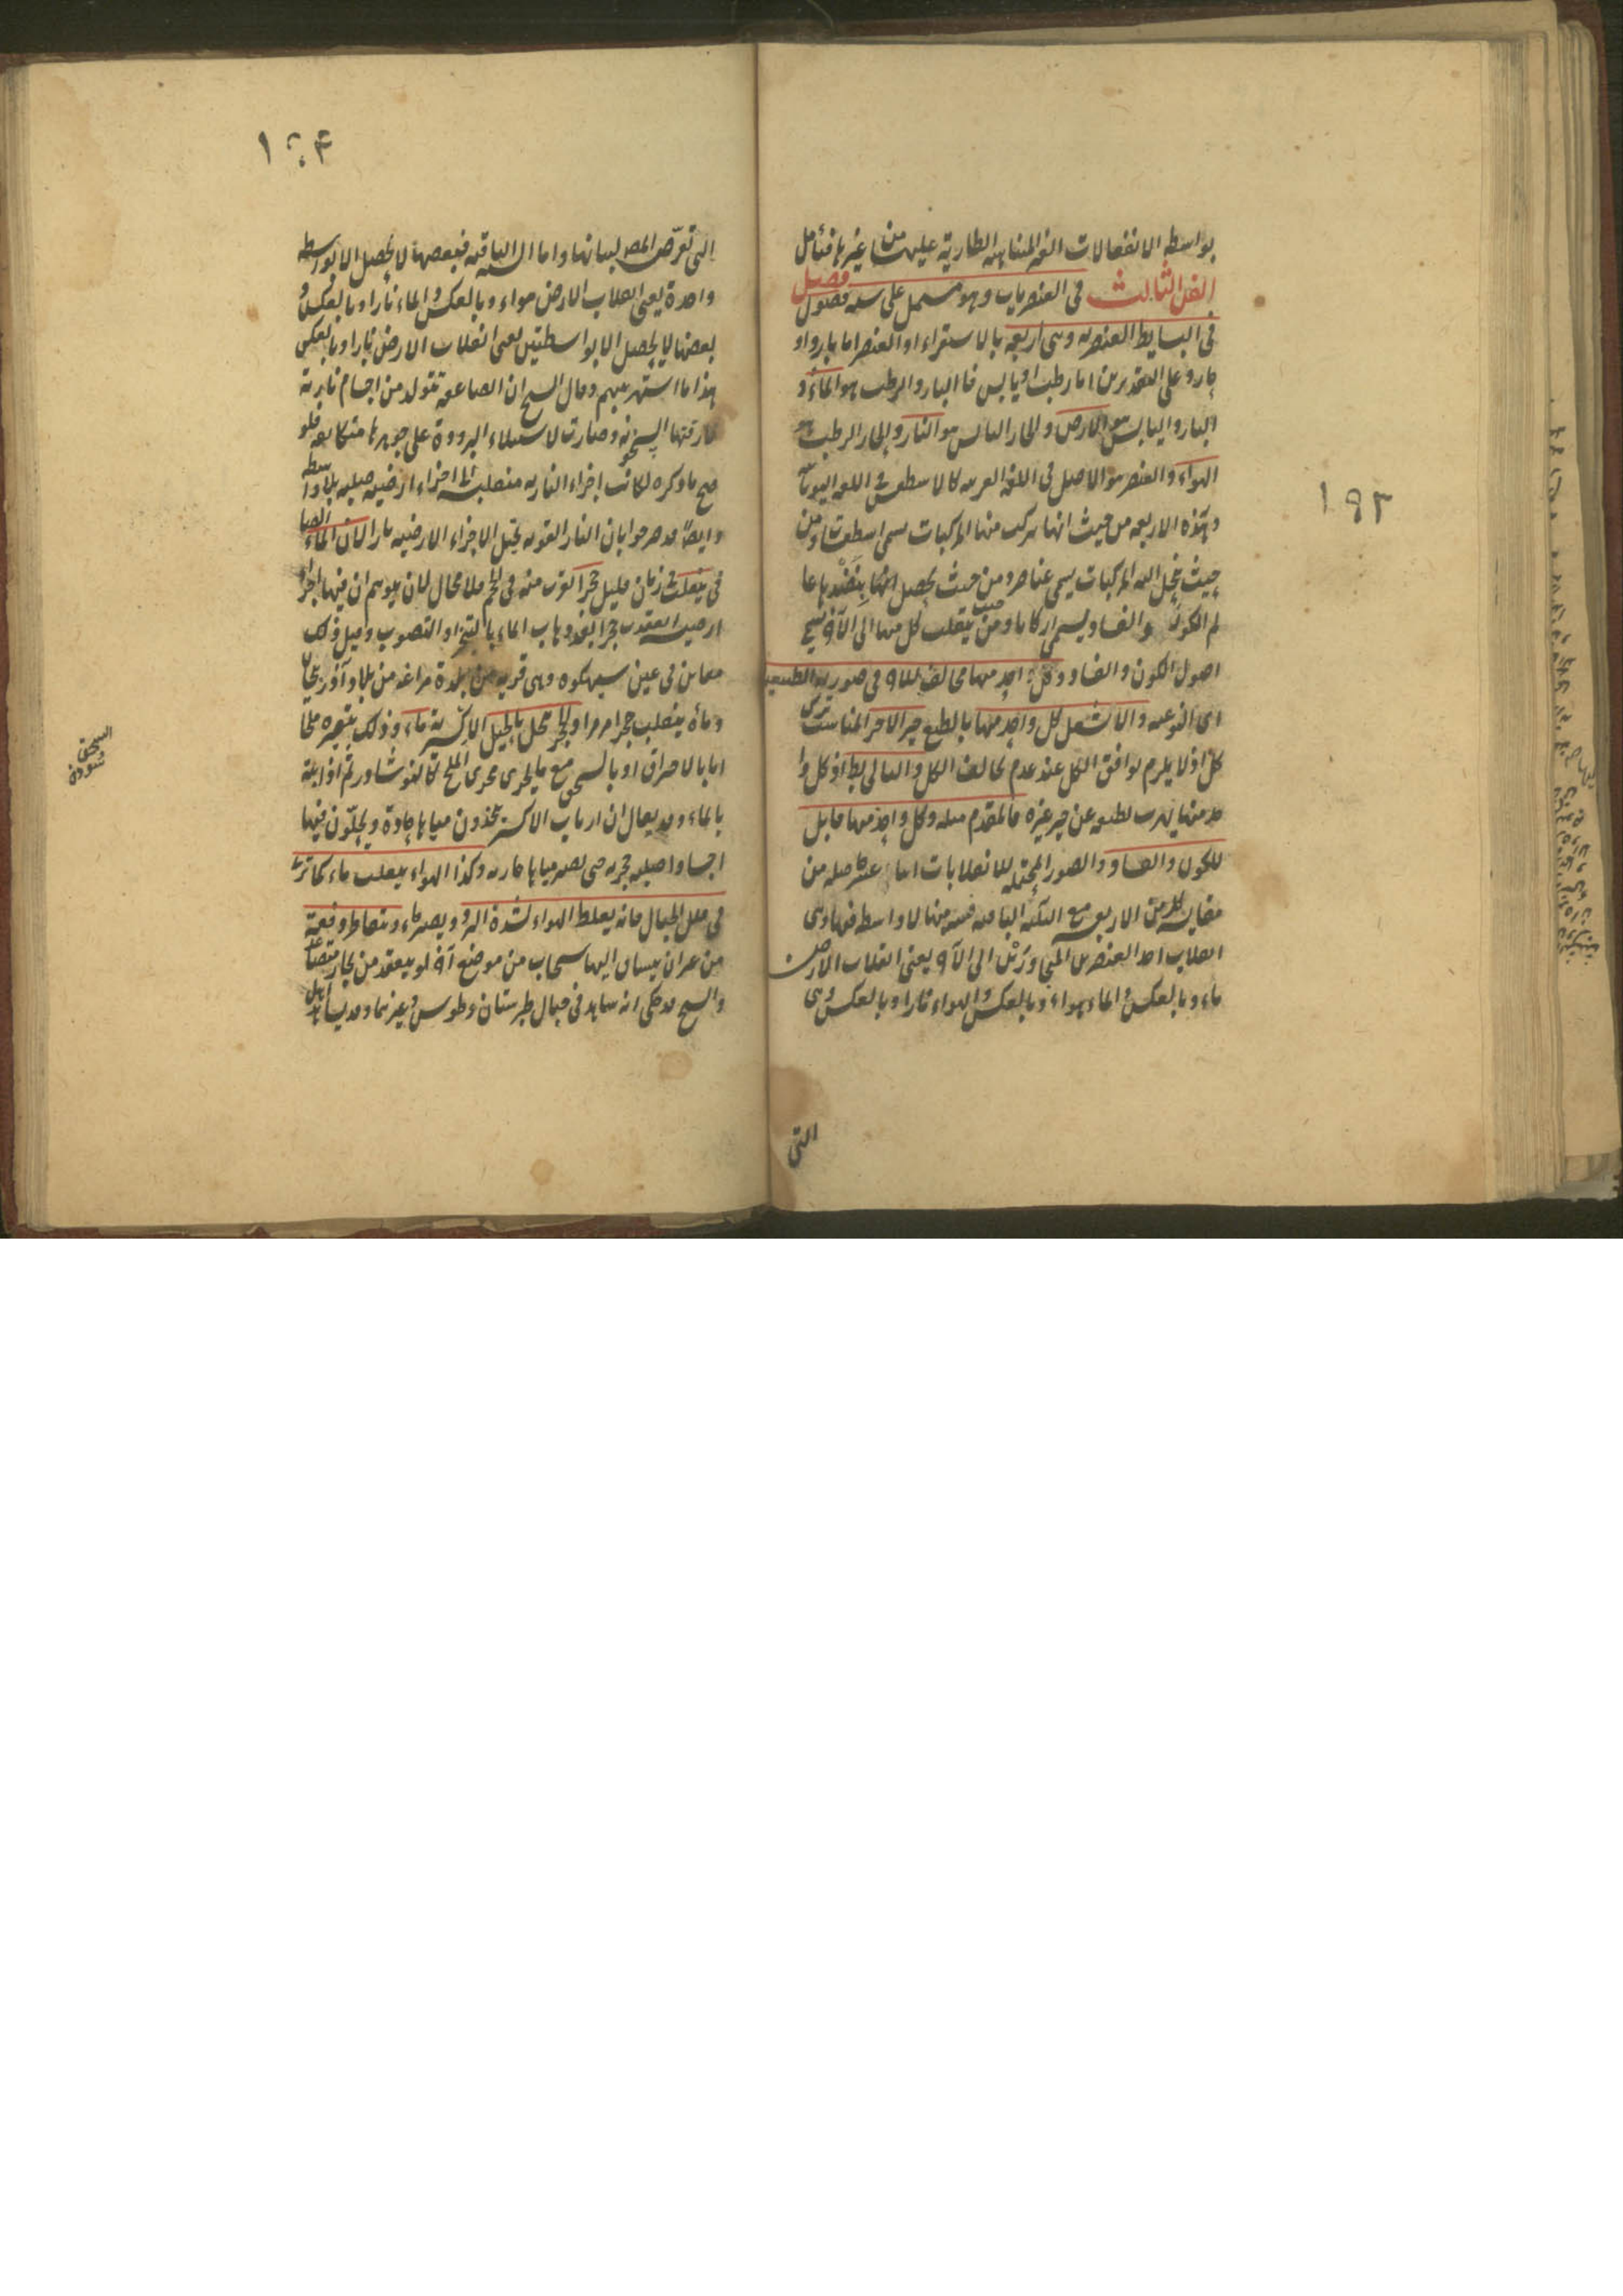 بواسطه الانفعالات الغير المتناهيه الطاريه عليها من غيرها فتأمل
الفن الثالث فى العنصريات وهو مشتمل على سته فصول فصل
فى البسايط العنصريه وهى اربعه بالاستقراء او العنصر اما بارد او
حار وعلى التقديرين اما رطب او يابس فالبارد الرطب هو الماء و
البارد اليابس هو الارض والحار اليابس هو النار والحار الرطب هو
الهواء والعنصر هو الاصل فى اللغه العربيه كالاسطقس فى اللغه اليونانيه
وهذه الاربعه من حيث انها يتركب منها المركبات يسمى اسطقسات ومن
حيث ينحل اليه المركبات يسمى عناصر ومن حيث يحصل بنضدها عا
لم الكون والفساد يسمى اركانا ومن حيث ينقلب كل منها الى الآخر يسمى
اصول الكون والفساد وكل واحد منها مخالف للاخر فى صورته الطبيعيه
اى النوعيه والا لشغل كل واحد منها بالطبع حيز الاخر المناسب ترك
كل اذ لا يلزم توافق الكل عند عدم تخالف الكل والتالى بط اذ كل وا
حد منها يهرب بطبعه عن حيز غيره فالمقدم مثله وكل واحد منها قابل
للكون والفساد والصور المحتمله للانقلابات اثنا عشر حاصله من
مقايسه كل من الاربعه مع الثلثه الباقيه فسته منها لا واسطه فيها وهى
انقلاب احد العنصرين المتجاورين الى الآخر يعنى انقلاب الارض
ماء وبالعكس والماء هواء وبالعكس والهواء نارا وبالعكس وهى
التى
١٩٣
١٩٤
التى تعرض المصـ لبيانها واما الستة الباقيه فبعضها لا يحصل الا بواسطه
واحدة يعنى انقلاب الارض هواء وبالعكس والماء نارا وبالعكس و
بعضها لا يحصل الا بواسطتين يعنى انقلاب الارض نارا وبالعكس
هذا ما اشتهر بينهم وقال الشيخ ان الصاعقه تتولد من اجسام ناريه
فارقتها السخونه وصارت لاستيلاء البرودة على جوهرها متكاثفه فلو
صح ما ذكره لكانت اجزاء الناريه منقلبه الى اجزاء ارضيه صلبه بلا واسطه
وايضا قد صرحوا بان النار القويه تحيل الاجزاء الارضيه نارا لان الماء الصا
فى ينقلب فى زمان قليل حجرا يقرب منه فى الحجم فلا مجال لان يتوهم ان فيها اجزاء
ارضيه انعقدت حجرا بعد ذهاب الماء بالتبخر او النضوب وقيل ذلك
معاين فى عين سيهكوه وهى قريه من بلدة مراغه من بلاد آذربيجان
وماؤه ينقلب حجرا مرمرا والحجر ينحل بالحيل الاكسيريه ماء وذلك بتصييره ملحا
اما بالاحراق او بالسحق مع ما يجرى مجرى الملح كالنوشادر ثم اذابته
بالماء وقد يقال ان ارباب الاكسير يتخذون مياها حادة ويحلون فيها
اجسادا صلبه حجريه حتى تصير مياها جاريه وكذا الهواء ينقلب ماء كما ترى
فى قلل الجبال فانه يغلظ الهواء لشدة البرد ويصير ماء ويتقاطر دفعة
من غير ان ينساق اليها سحاب من موضع آخر او ينعقد من بخار متصاعد
والشيخ قد حكى انه شاهد فى جبال طبرستان وطوس وغيرهما وقد يشاهد
السحق
سودن